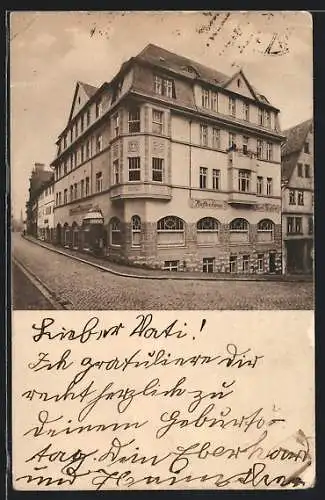 Kaffee
Lieber Vati!
Ich gratuliere Dir
recht herzlich zu
deinem Geburts-
tag. Dein Eberhard
und